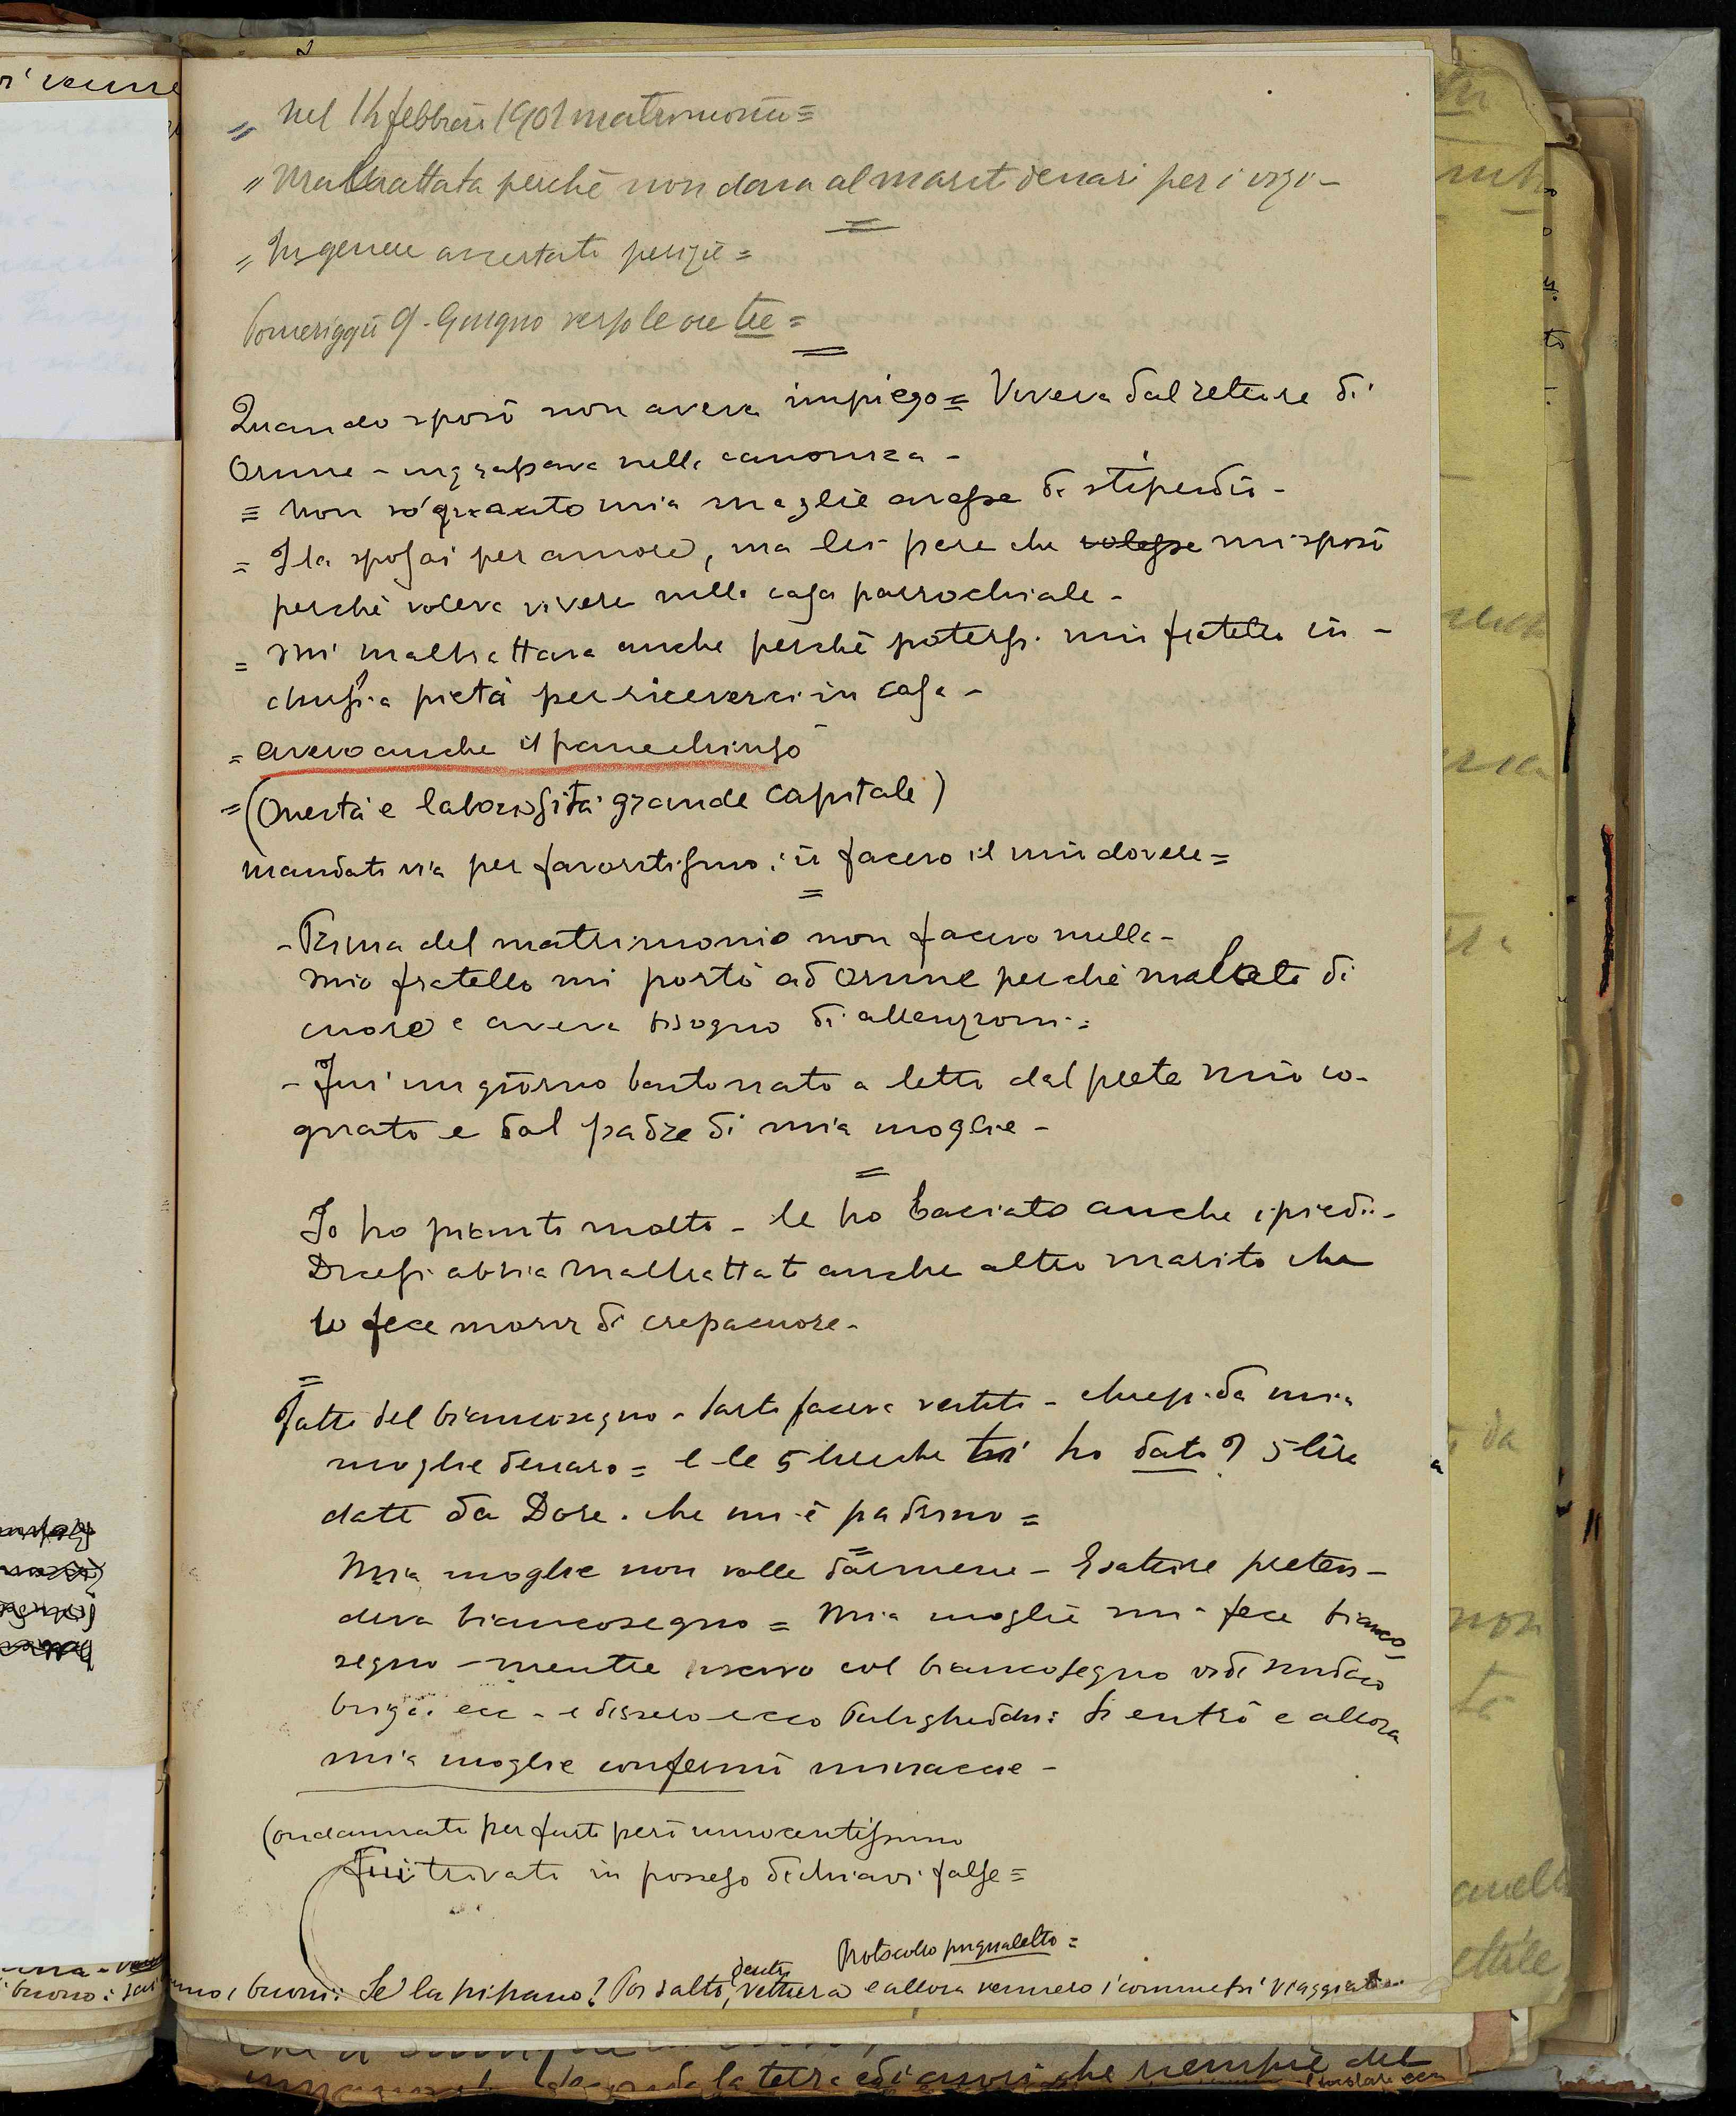 " nel 14 febbraio 1901 matrimonio =
" Maltrattata perché non dava al marito denari per i vizi -
= In genere accertati perizie =
Pomeriggio 9 - Giugno verso le ore tre =
Quando sposò non aveva impiego = Viveva dal rettore di
Orune - ingrassava nella canonica -
= Non so quanto mia moglie avesse di stipendio -
= Io la sposai per amore, ma lei pare che volesse mi sposò
perchè voleva vivere nella casa parrochiale -
= Mi maltrattava anche perchè potessi mio fratello in -
dussi a pietà per riceverci in casa -
= avevo anche il pane chiuso
= (Onestà e laboriosità grande capitale)
mandato via per favoritismo: io facevo il mio dovere =
- Prima del matrimonio non facevo nulla -
mio fratello mi portò ad Orune perchè malato di
cuore e aveva bisogno di attenzioni =
- Fui un giorno bastonato a letto dal prete mio co-
gnato e dal padre di mia moglie -
Io ho pianto molto - le ho baciato anche i piedi -
Dicesi abbia maltrattato anche altro marito che
lo fece morir di crepacuore -
Fatto del biancosegno - sarto faceva vestito - chiesi da mia
moglie denaro = e le 5 lire che ti ho dato? 5 lire
date da Dore. che mi è padrino =
Mia moglie non volle darmene - Esattore preten-
deva biancosegno = Mia moglie mi fece bianco
segno - mentre uscivo col biancosegno vidi sindaco
brig. ecc - e dissero ecco Puligheddu: si entrò e allora
mia moglie confermò minaccie -
Condannato per furto però innocentissimo
Fui trovato in possesso di chiavi false =
Protocollo pugnaletto =
i buoni: Se la pipano! Poi saltò dentro vettura e allora vennero i commessi viaggiatori